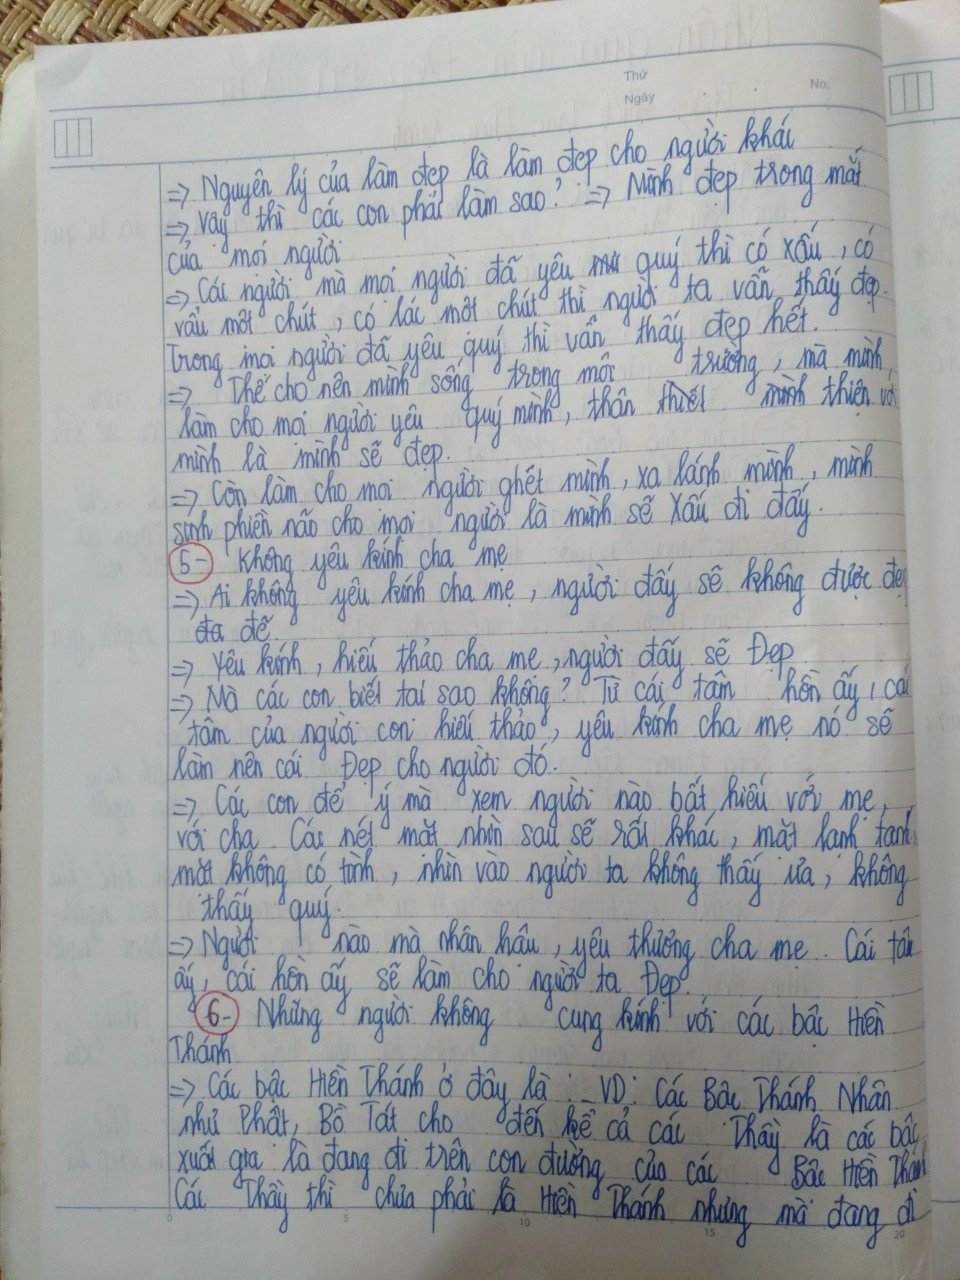 Thứ
No.
Ngày
=> Nguyên lý của làm đẹp là làm đẹp cho người khác
=> Vậy thì các con phải làm sao? => Mình đẹp trong mắt
của mọi người
=> Cái người mà mọi người đã yêu quý thì có xấu, có
vẩu một chút, có lác một chút thì người ta vẫn thấy đẹp.
Trong mọi người đã yêu quý thì vẫn thấy đẹp hết.
=> Thế cho nên mình sống trong môi trường, mà mình
làm cho mọi người yêu quý mình, thân thiết mình thiện với
mình là mình sẽ đẹp.
=> Còn làm cho mọi người ghét mình, xa lánh mình, mình
sinh phiền não cho mọi người là mình sẽ xấu đi đấy.
5- Không yêu kính cha mẹ
=> Ai không yêu kính cha mẹ, người đấy sẽ không được đẹp
đa đẽ.
=> Yêu kính, hiếu thảo cha mẹ, người đấy sẽ Đẹp
=> Mà các con biết tại sao không? Từ cái tâm hồn ấy, cái
tâm của người con hiếu thảo, yêu kính cha mẹ nó sẽ
làm nên cái Đẹp cho người đó.
=> Các con để ý mà xem người nào bất hiếu với mẹ,
với cha. Cái nét mặt nhìn sau sẽ rất khác, mặt lạnh tanh,
mặt không có tình, nhìn vào người ta không thấy ưa, không
thấy quý.
=> Người nào mà nhân hậu, yêu thương cha mẹ. Cái tâm
ấy, cái hồn ấy sẽ làm cho người ta Đẹp.
6- Những người không cung kính với các bậc Hiền
Thánh
=> Các bậc Hiền Thánh ở đây là: - VD: Các Bậc Thánh Nhân
như Phật, Bồ Tát cho đến kể cả các Thầy là các bậc
xuất gia là đang đi trên con đường của các Bậc Hiền Thánh
Các Thầy thì chưa phải là Hiền Thánh nhưng mà đang đi
0 5 10 15 20